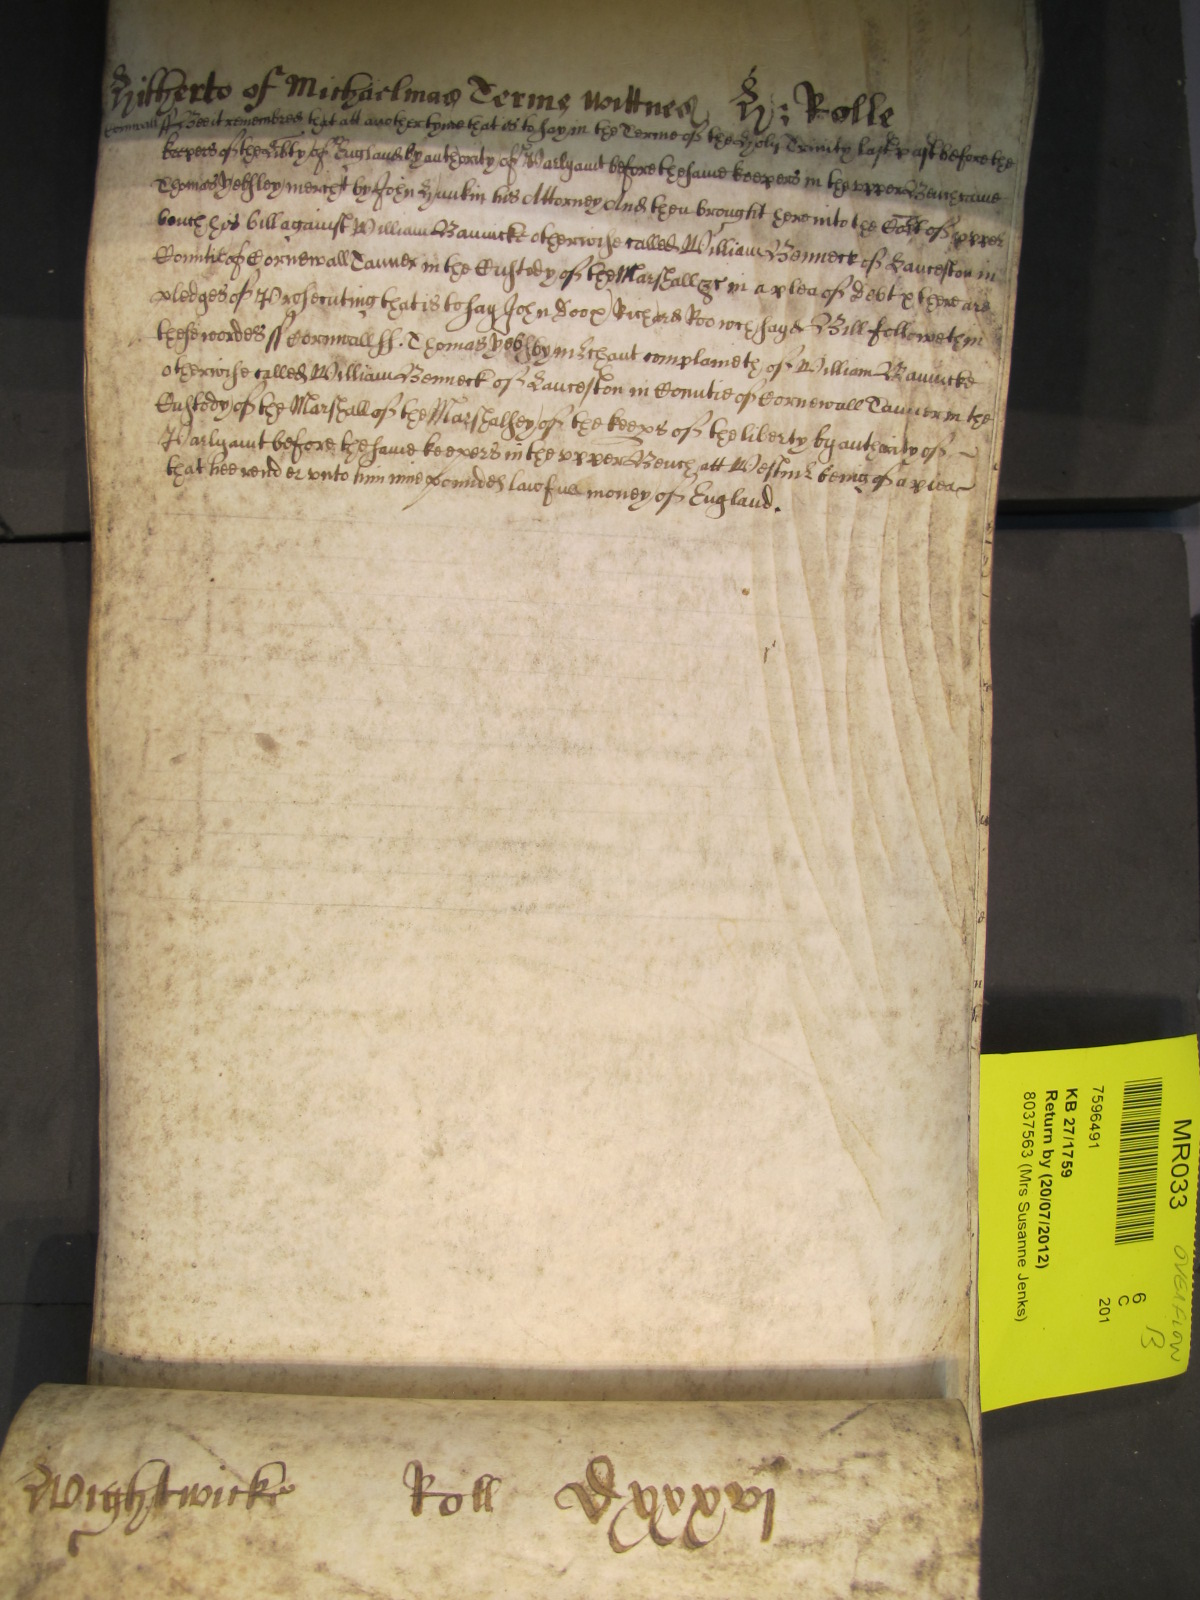 Hitherto of Michaelmas Terme wittnes H: Rolle
Cornwall ss Bee it remembred that att another tyme that is to say in the Terme of the Holy Trinity last past before the
keepers of the libty of England by authority of Parlyamt before the same keepers in the upper Bench came
Thomas Yebsley mercht by John Hunkin his Attorney And then brought here into the Cort of upper
bench his bill against William Bannicke otherwise called William Benneck of Lanceston in
Countie of Cornewall Tanner in the Custody of the Marshall &c in a plea of Debt & there are
pledges of Prosecuting that is to say John Doo & Richard Roo wch say'd Bill followeth in
these wordes ss Cornwall ss. Thomas Yebsley mrchant complaineth of William Bannicke
otherwise called William Benneck of Lanceston in Countie of Cornewall Tanner in the
Custody of the Marshall of the Marshalsey of the keeps of the liberty by authority of
Parlyamt before the same keepers in the upper Bench att Westmr being of a plea
that hee render unto him nine poundes lawfull money of England.
Wightwicke Roll Dxxxxvi
MR033
7596491
KB 27/1759
Return by (20/07/2012)
8037563 (Mrs Susanne Jenks)
6
C
201
OVERFLOW
B